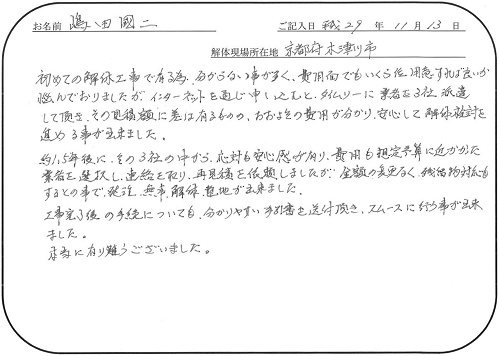 お名前 嶋田國二 ご記入日 平成29年11月13日
解体現場所在地 京都府木津川市
初めての解体工事で有る為、分からない事が多く、費用面でもいくら位用意すれば良いか
悩んでおりましたが、インターネットを通じ申し込むと、タイムリーに業者を3社派遣
して頂き、その見積額に差は有るものの、おおよその費用が分かり、安心して解体検討を
進める事が出来ました。
約1.5年後に、その3社の中から、応対も安心感が有り、費用も想定予算に近かった
業者を選択し、連絡を取り、再見積を依頼しましたが、金額の変更なく、残留物対応も
するとの事で、発注、無事解体整地が出来ました。
工事完了後の手続についても、分かりやすい手引書を送付頂き、スムースに行う事が出来
ました。
まことに有り難うございました。